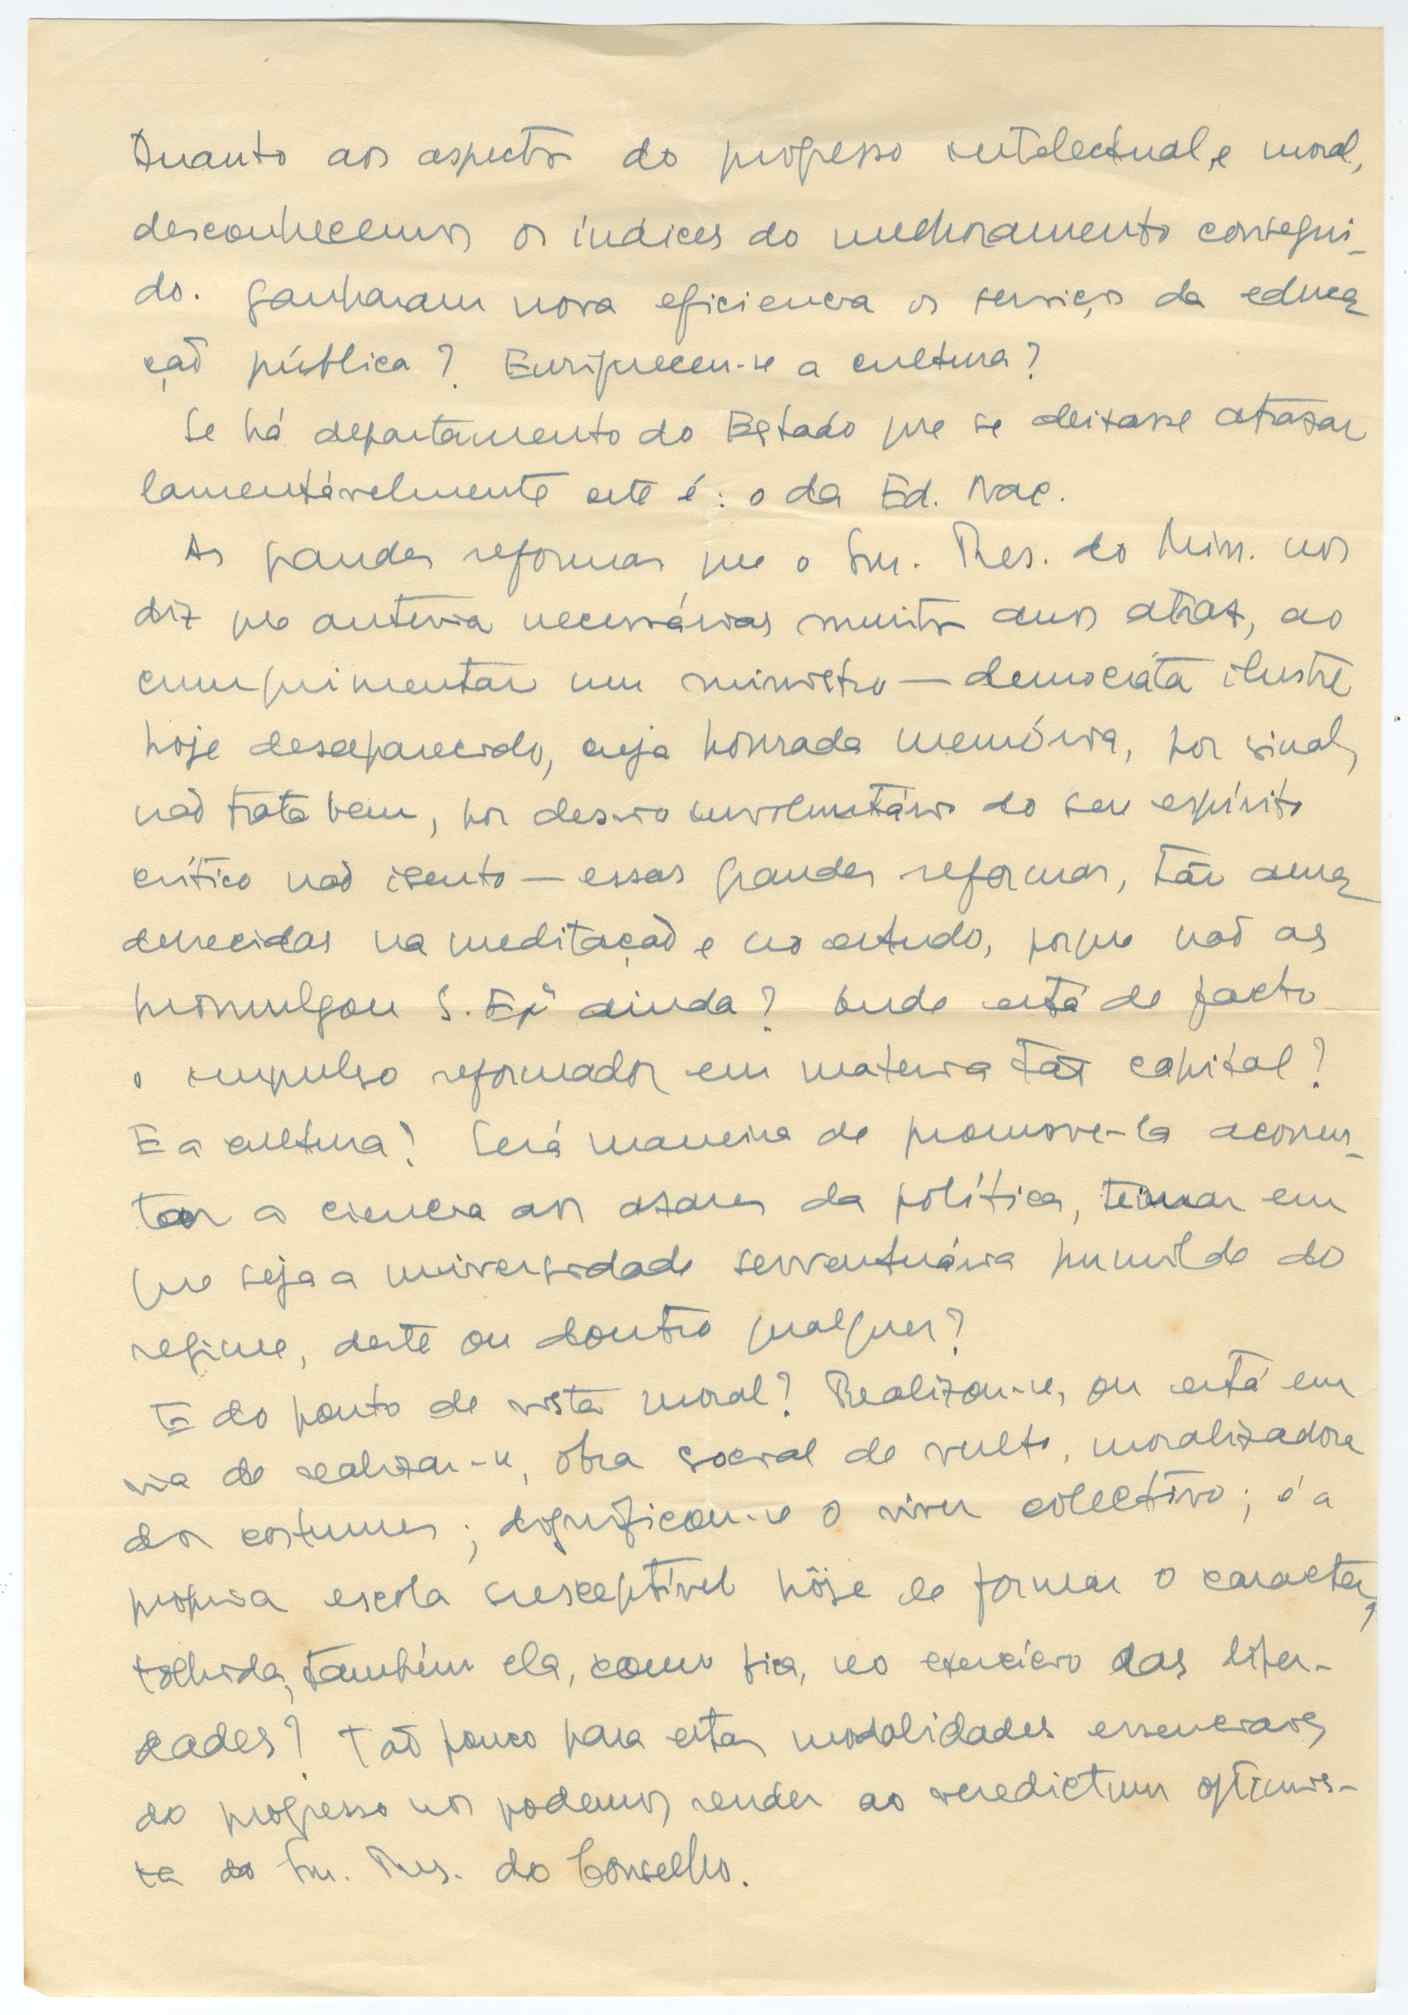 Quanto aos aspectos do progresso intelectual, e moral,
desconhecemos os índices do melhoramento consegui-
do. Ganharam nova eficiencia os serviços da educa
ção pública? Enriqueceu-se a cultura?
Se há departamento do Estado que se deixasse atrazar
lamentávelmente este é: o da Ed. Nac.
As grandes reformas que o Snr. Pres. do Minis. nos
diz que antevia necessárias muitos anos atraz, ao
cumprimentar um ministro — democráta ilustre
hoje desaparecido, cuja honrada memória, por sinal,
não trata bem, por desvio involuntário do seu espírito
crítico não isento — essas grandes reformas, tão ama
durecidas na meditação e no estudo, porque não as
promulgou S. Exª ainda? Onde está de facto
o impulso reformador em materia tão capital?
E a cultura? Será maneira de promove-la acorren-
tar a ciencia aos azares da política, teimar em
que seja a universidade serventuária humilde do
regime, deste ou doutro qualquer?
E do ponto de vista moral? Realizou-se, ou está em
via de realizar-se, obra social de vulto, moralizadora
dos costumes; dignificou-se o viver colectivo; é a
propria escola susceptível hôje de formar o caracter,
tolhida, também ela, como fica, no exercicio das liber-
dades? Tão pouco para estas modalidades essenciais
do progresso nos podemos render ao veredictum optimis-
ta do Snr. Pres. do Conselho.